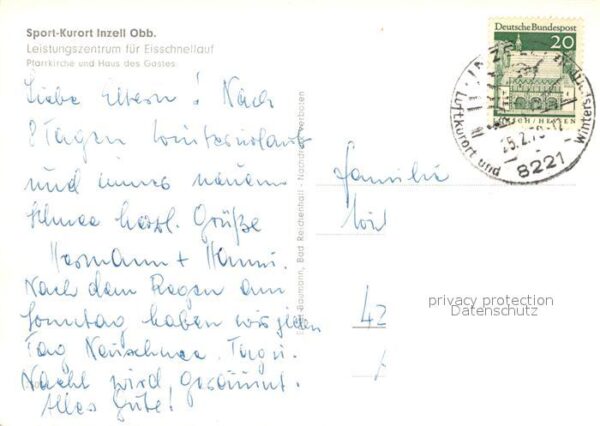 Sport-Kurort Inzell Obb.
Leistungszentrum für Eisschnellauf
Pfarrkirche und Haus des Gastes
Liebe Eltern! Nach
8 Tagen Winterurlaub
und immer neuem
Schnee herzl. Grüße
Hermann + Hanni.
Nach dem Regen am
Sonntag haben wir jeden
Tag Neuschnee. Tag u.
Nacht wird geräumt.
Alles Gute!
Baumann, Bad Reichenhall - Nachdruck verboten
Deutsche Bundespost
20
LORSCH/HESSEN
INZELL
25.2.70-17
8221
Luftkurort und Winters
Familie
42
privacy protection
Datenschutz